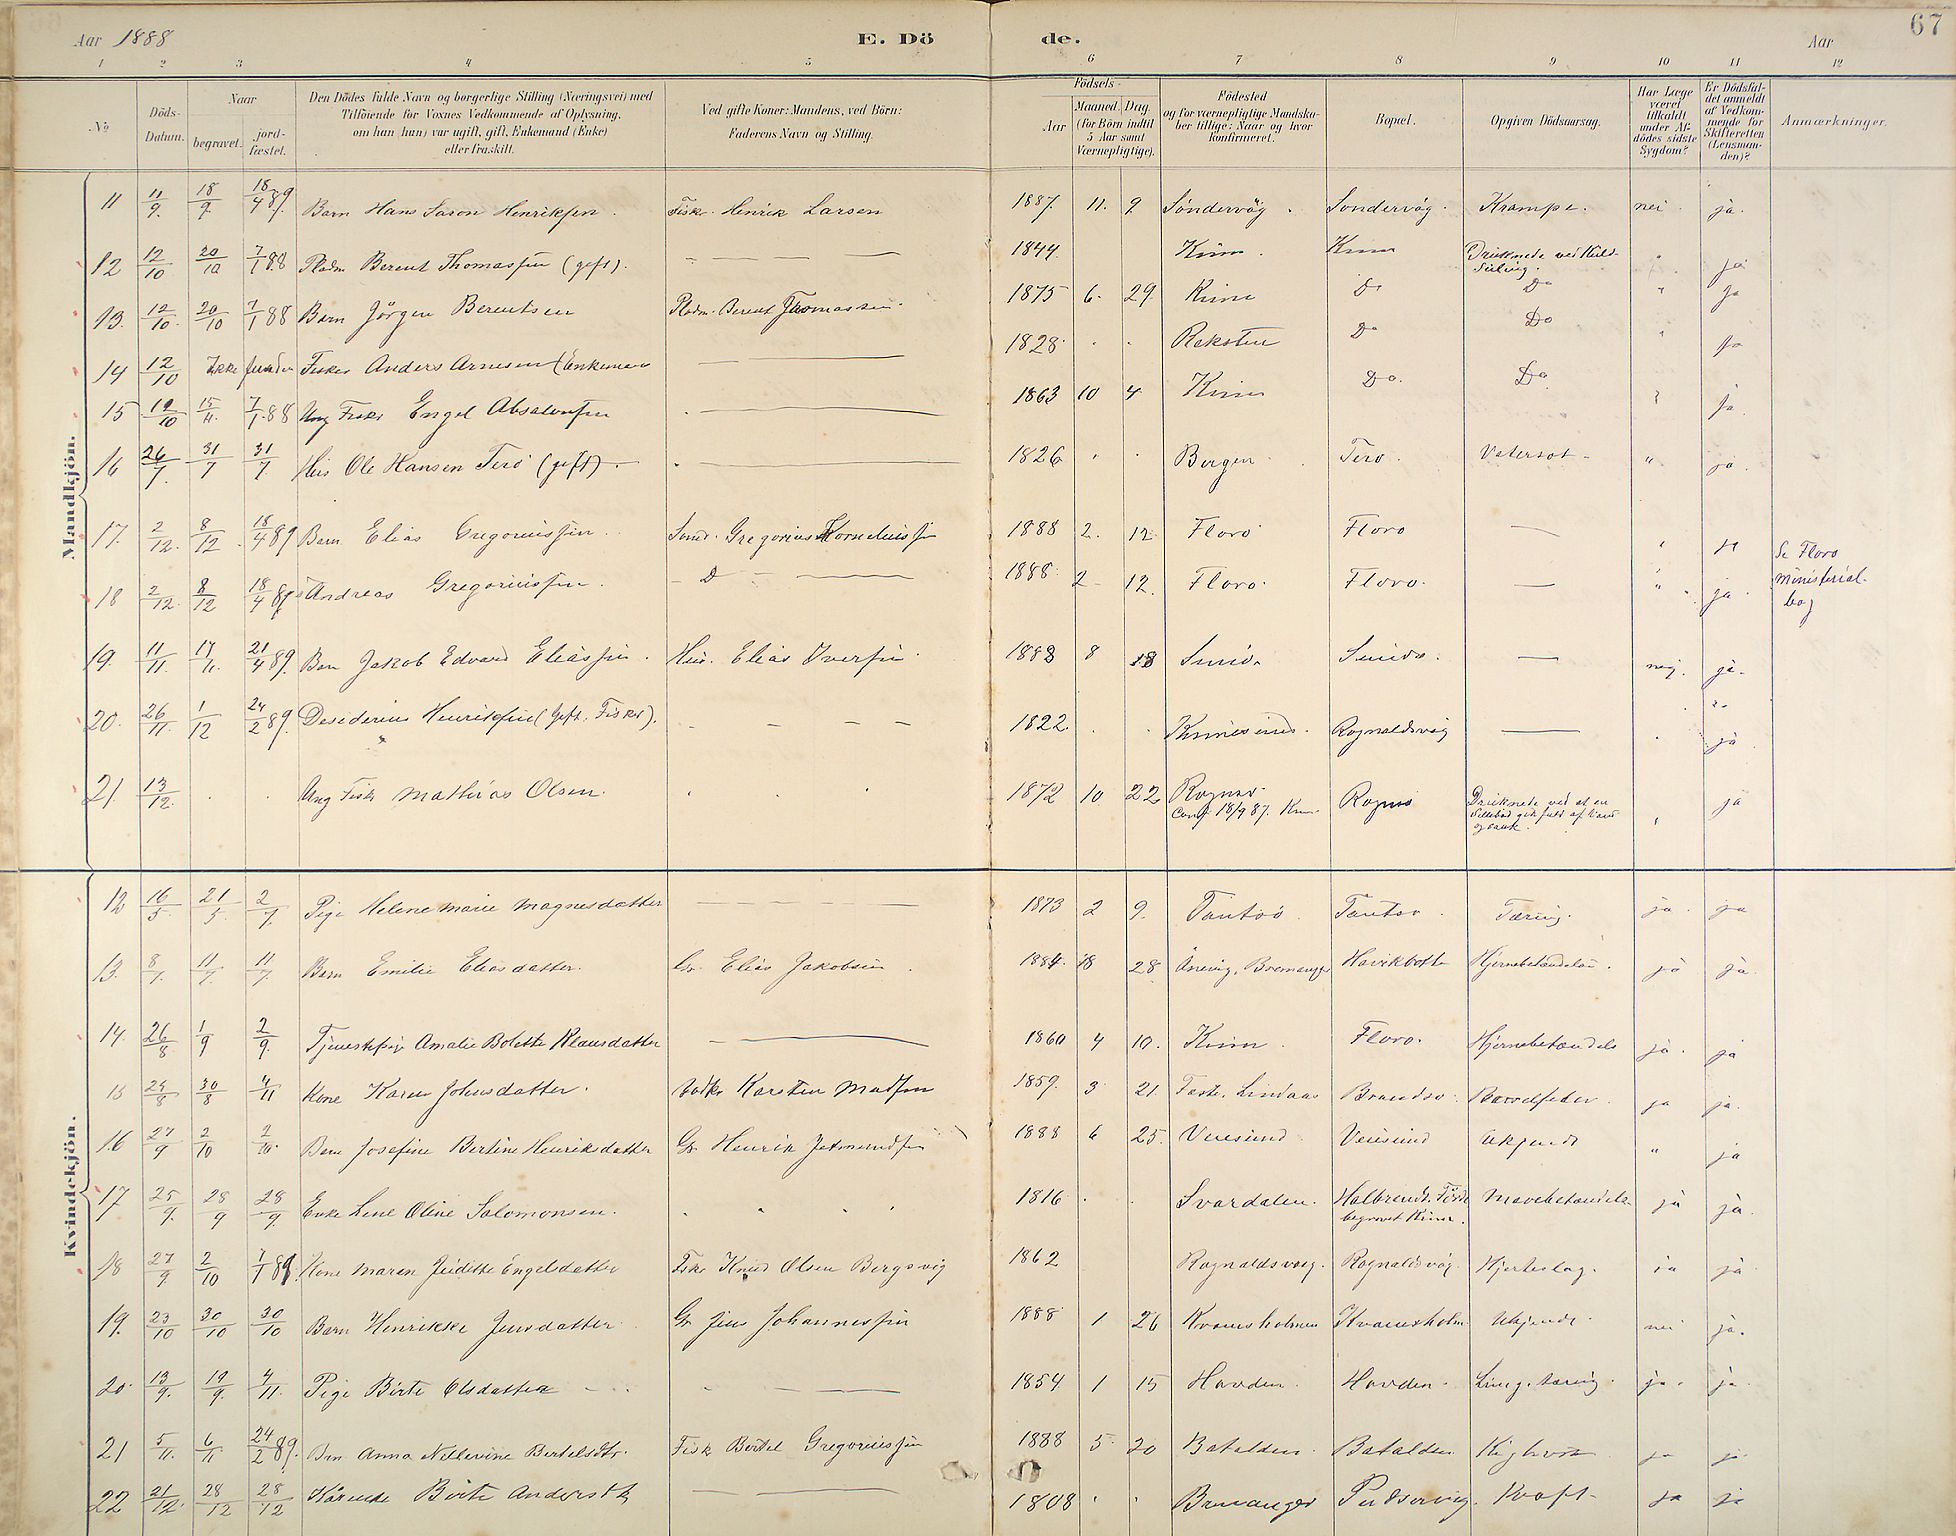 67
Aar 1888 E. Dö de. Aar
1 2 3 4 5 6 7 8 9 10 11 12
No
Döds-
Datum.
Naar
begravet.
jord-
fæstet.
Den Dödes fulde Navn og borgerlige Stilling (Næringsvei) med
Tilföiende for Voxnes Vedkommende af Oplysning,
om han (hun) var ugift, gift, Enkemand (Enke)
eller fraskilt.
Ved gifte Koner: Mandens, ved Börn:
Faderens Navn og Stilling.
Födsels-
Aar
Maaned. Dag.
(for Börn indtil
5 Aar samt
Værnepligtige).
Födested
og for værnepligtige Mandska-
ber tillige: Naar og hvor
konfirmeret.
Bopæl.
Opgiven Dödsaarsag.
Har Læge
været
tilkaldt
under Af-
dödes sidste
Sygdom?
Er Dödsfal-
det anmeldt
af Vedkom-
mende for
Skifteretten
(Lensman-
den)?
Anmærkninger.
Mandkjön.
11 11/9. 18/9 18/4 89. Barn Hans Henriksen. Fisk. Henrik Larsen 1887. 11. 9. Söndervåg. Sondervåg. Krampe. nei. ja.
12 12/10 20/10 7/1 88 Berent Thomassen (gift). 1844. Kinn. Kinn Druknede ved Kuld-
seiling. " ja
13. 12/10. 20/10 7/1 88 Barn Jörgen Berentsen Berent Thomassen. 1875 6. 29. Kinn Do Do " Ja
14 12/10 Ikke funden Fisker Anders Arnesen (Enkemand 1828. Reksten Do Do " Ja
15 12/10 15/11. 7/1. 88 Ung Fisker Engel Absalonsen 1863 10 4. Kinn Do. Do " Ja.
16 26/7. 31/7 31/7. Hus Ole Hansen Terö (gift). 1826 Bergen Terö. Vatersot " ja.
17. 2/12. 8/12. 18/4 89 Barn Elias Gregoriussen. Smed. Gregorius Korneliussen 1888 2. 12. Floro Floro " ja Se Floro
18 2/12. 8/12 18/4 89 Andreas Gregoriussen. D 1888. 2 12. Floro. Floro. " ja. Ministerial-
bog
19. 11/11. 17/11. 21/4 89. Barn Jakob Edvard Eliassen. Hus. Elias Iversen. 1888 8 18 nei. ja.
20. 26/11. 1/12 24/2 89. Desiderius Henriksen (gift. Fisker). 1822. Kinnesund. Rognaldsvåg ja
21. 13/12. Ung Fisk Mathias Olsen. 1872 10 22 Rognö.
Conf 18/9 87. Kinn Rognö Druknede ved at en
Sildebåd gik fuld af Vand
og sank. " ja
Kvindekjön.
12 16/5. 21/5. 2/7. Pige Helene Marie Magnesdatter 1873 2 9. Tansö. Tansö. Tæring. ja. ja
13. 8/7. 11/7. 11/7 Barn Emilie Eliasdatter. Gr. Elias Jakobsen. 1884. 28 Bremanger Havikbotn Hjernebetændelse. ja ja.
14. 26/8. 1/9 2/9. Tjenestepige Amalie Bolette Klausdatter 1860 4 10. Kinn. Floro. Hjernebetændelse ja. ja
15 24/8 30/8 4/11 Kone Karen Johnsdatter. Karsten Madsen 1859. 3 21. Lindaas Brandsö. Barselfeber. ja ja.
16 27/9 2/10 2/10. Barn Josefine Bertine Henriksdatter Gr Henrik 1888 6 25. Veiesund. Veiesund Ukjendt " ja
17 25/9. 28/9 28/9 Enke Lene Oline Salomonsen. 1816. Svardalen. Halbrendt, Förde
begravet Kinn. Mavebetændelse ja ja.
18 27/9. 2/10 7/1 89. Kone Maren Juditte Engelsdatter Fisk. Knud Olsen Bergsvig 1862 Rognaldsvaag. Rognaldsvåg. Hjerteslag. ja ja
19. 23/10 30/10 30/10 Barn Henrikke Jensdatter. Gr Jens Johannessen 1888 1 26 Kvamsholmen Kvamsholm Ukjendt. nei ja.
20. 13/9. 19/9. 4/11. Pige Birte Olsdatter 1854 1 15 Havden. Havden. Lungetæring. ja. ja.
21 5/11. 6/11 24/2 89. Barn Anna Nillevine Bertelsdtr. Fisk Bertel Gregoriussen 1888 5. 20 Batalden. Batalden. Kighoste ja ja.
22 21/12. 28/12 28/12 Kårenke Birte Andersdtr 1808 Bremanger Kræft ja ja